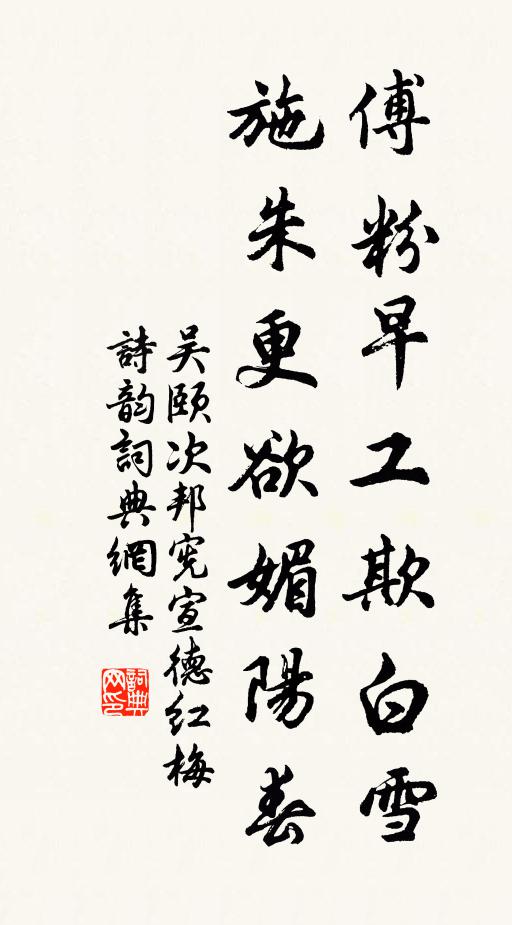 傅粉早工欺白雪
施朱更欲媚陽春
吴頤次邦宪宣德红梅
詩韵詞典網集
詞典网印